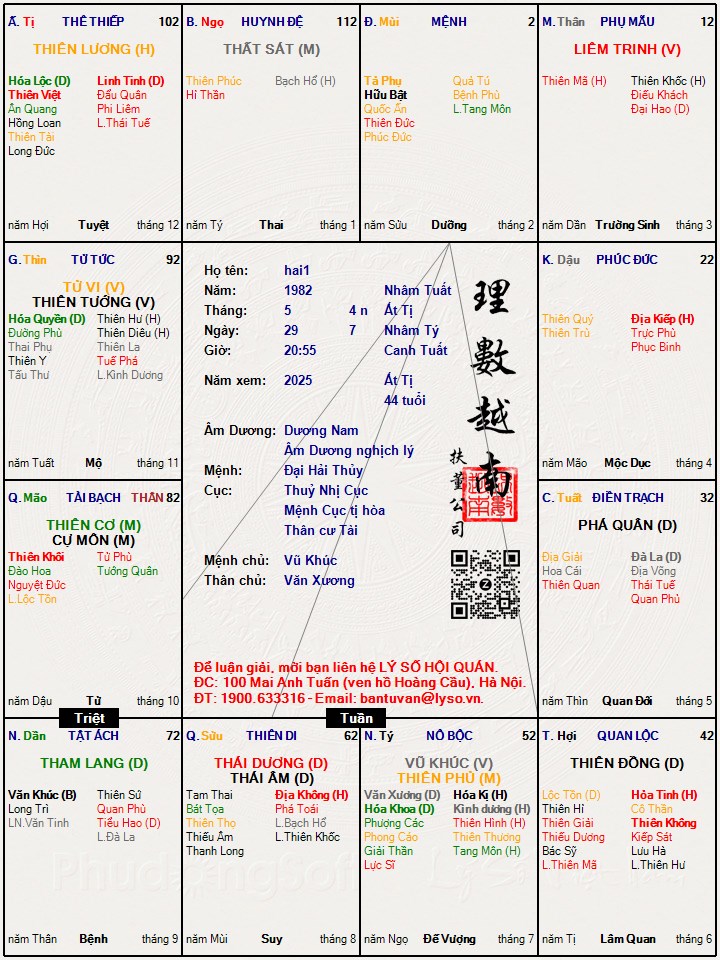 Ấ. Tị THÊ THIẾP 102
THIÊN LƯƠNG (H)
Hóa Lộc (D) Linh Tinh (D)
Thiên Việt Đẩu Quân
Ân Quang Phi Liêm
Hồng Loan L.Thái Tuế
Thiên Tài
Long Đức
năm Hợi Tuyệt tháng 12
B. Ngọ HUYNH ĐỆ 112
THẤT SÁT (M)
Thiên Phúc Bạch Hổ (H)
Hỉ Thần
năm Tý Thai tháng 1
Đ. Mùi MỆNH 2
Tả Phụ Quả Tú
Hữu Bật Bệnh Phù
Quốc Ấn L.Tang Môn
Thiên Đức
Phúc Đức
năm Sửu Dưỡng tháng 2
M. Thân PHỤ MẪU 12
LIÊM TRINH (V)
Thiên Mã (H) Thiên Khốc (H)
Điếu Khách
Đại Hao (D)
năm Dần Trường Sinh tháng 3
G. Thìn TỬ TỨC 92
TỬ VI (V)
THIÊN TƯỚNG (V)
Hóa Quyền (D) Thiên Hư (H)
Đường Phù Thiên Diêu (H)
Thai Phụ Thiên La
Thiên Y Tuế Phá
Tấu Thư L.Kình Dương
năm Tuất Mộ tháng 11
Họ tên: hai1
Năm: 1982 Nhâm Tuất
Tháng: 5 4 n Ất Tị
Ngày: 29 7 Nhâm Tý
Giờ: 20:55 Canh Tuất
Năm xem: 2025 Ất Tị
44 tuổi
Âm Dương: Dương Nam
Âm Dương nghịch lý
Mệnh: Đại Hải Thủy
Cục: Thuỷ Nhị Cục
Mệnh Cục tị hòa
Thân cư Tài
Mệnh chủ: Vũ Khúc
Thân chủ: Văn Xương
理數越南
扶董公司
Z
Để luận giải, mời bạn liên hệ LÝ SỐ HỘI QUÁN.
ĐC: 100 Mai Anh Tuấn (ven hồ Hoàng Cầu), Hà Nội.
ĐT: 1900.633316 - Email: bantuvan@lyso.vn.
K. Dậu PHÚC ĐỨC 22
Thiên Quý Địa Kiếp (H)
Thiên Trù Trực Phù
Phục Binh
năm Mão Mộc Dục tháng 4
Q. Mão TÀI BẠCH THÂN 82
THIÊN CƠ (M)
CỰ MÔN (M)
Thiên Khôi Tử Phù
Đào Hoa Tướng Quân
Nguyệt Đức
L.Lộc Tồn
năm Dậu Tử tháng 10
C. Tuất ĐIỀN TRẠCH 32
PHÁ QUÂN (D)
Địa Giải Đà La (D)
Hoa Cái Địa Võng
Thiên Quan Thái Tuế
Quan Phủ
năm Thìn Quan Đới tháng 5
Triệt
Tuần
N. Dần TẬT ÁCH 72
THAM LANG (D)
Văn Khúc (B) Thiên Sứ
Long Trì Quan Phù
LN.Văn Tinh Tiểu Hao (D)
L.Đà La
năm Thân Bệnh tháng 9
Q. Sửu THIÊN DI 62
THÁI DƯƠNG (D)
THÁI ÂM (D)
Tam Thai Địa Không (H)
Bát Tọa Phá Toái
Thiên Thọ L.Bạch Hổ
Thiếu Âm L.Thiên Khốc
Thanh Long
năm Mùi Suy tháng 8
N. Tý NÔ BỘC 52
VŨ KHÚC (V)
THIÊN PHỦ (M)
Văn Xương (D) Hóa Kị (H)
Hóa Khoa (D) Kình dương (H)
Phượng Các Thiên Hình (H)
Phong Cáo Thiên Thương
Giải Thần Tang Môn (H)
Lực Sĩ
năm Ngọ Đế Vượng tháng 7
T. Hợi QUAN LỘC 42
THIÊN ĐỒNG (D)
Lộc Tồn (D) Hỏa Tinh (H)
Thiên Hỉ Cô Thần
Thiên Giải Thiên Không
Thiếu Dương Kiếp Sát
Bác Sỹ Lưu Hà
L.Thiên Mã L.Thiên Hư
năm Tị Lâm Quan tháng 6